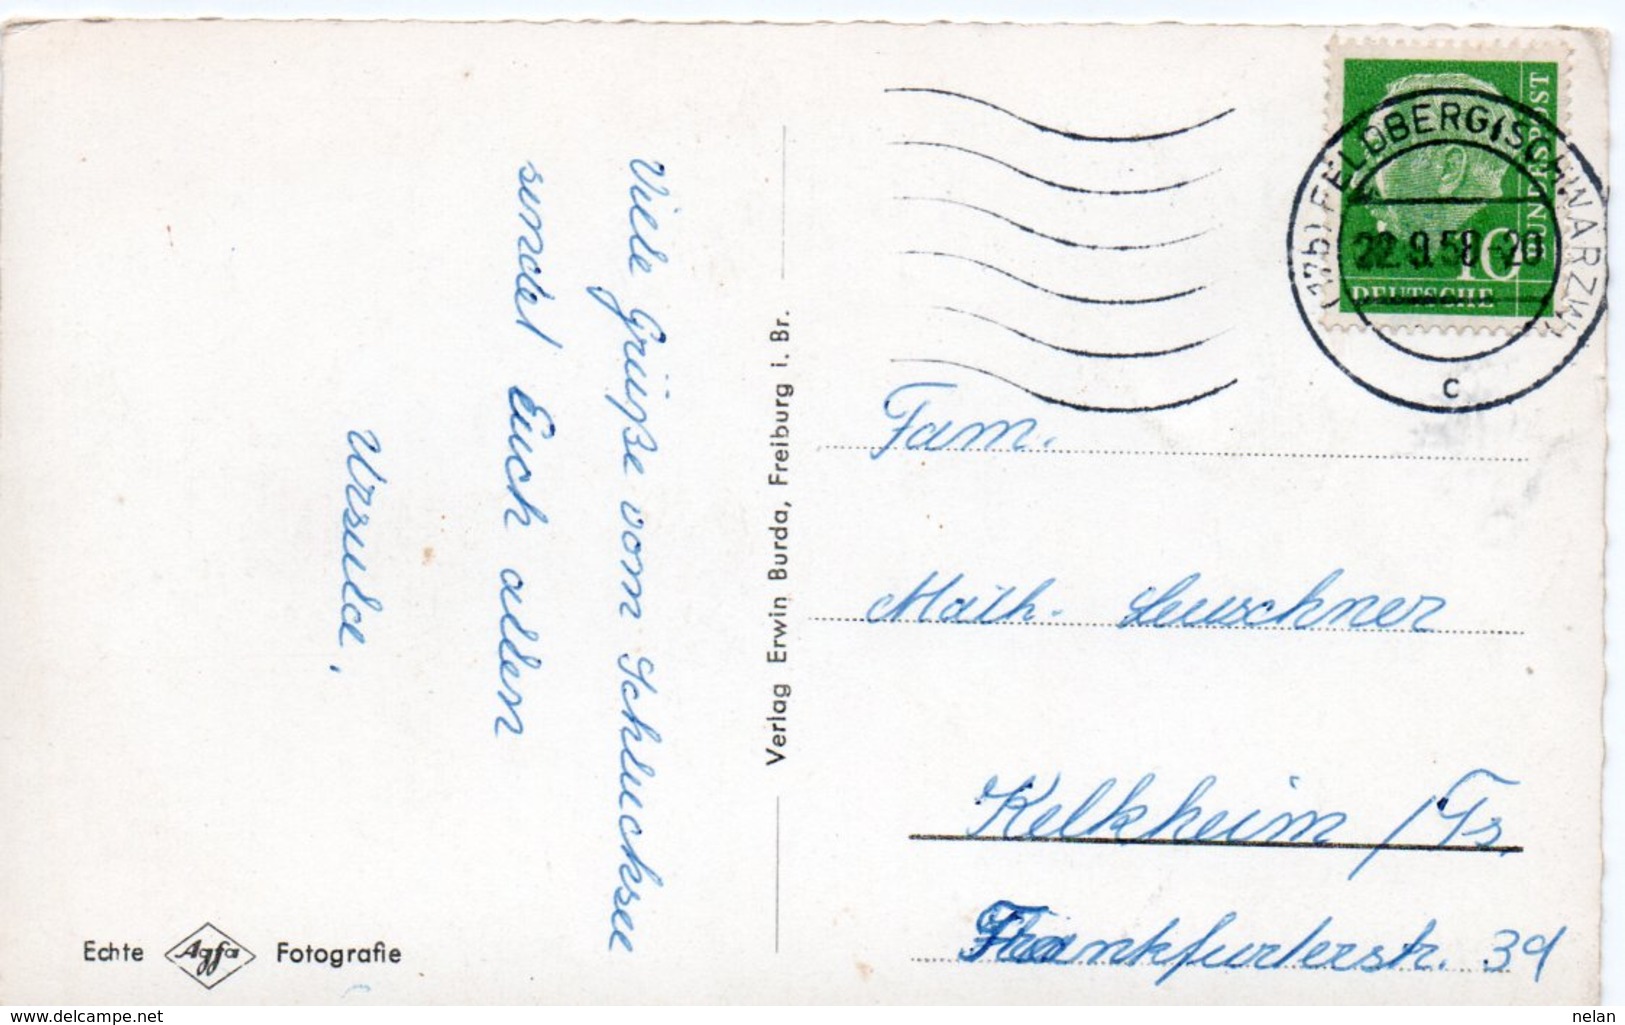 Viele Grüße vom Schluchsee
sendet Euch allen
Ursula.
Verlag Erwin Burda, Freiburg i. Br.
Echte Agfa Fotografie
DEUTSCHE
BUNDESPOST
10
(17b) FELDBERG (SCHWARZW)
22.9.58-20
c
Fam.
Math. Leuschner
Kelkheim /Ts.
Frankfurterstr. 39
www.delcampe.net
nelan